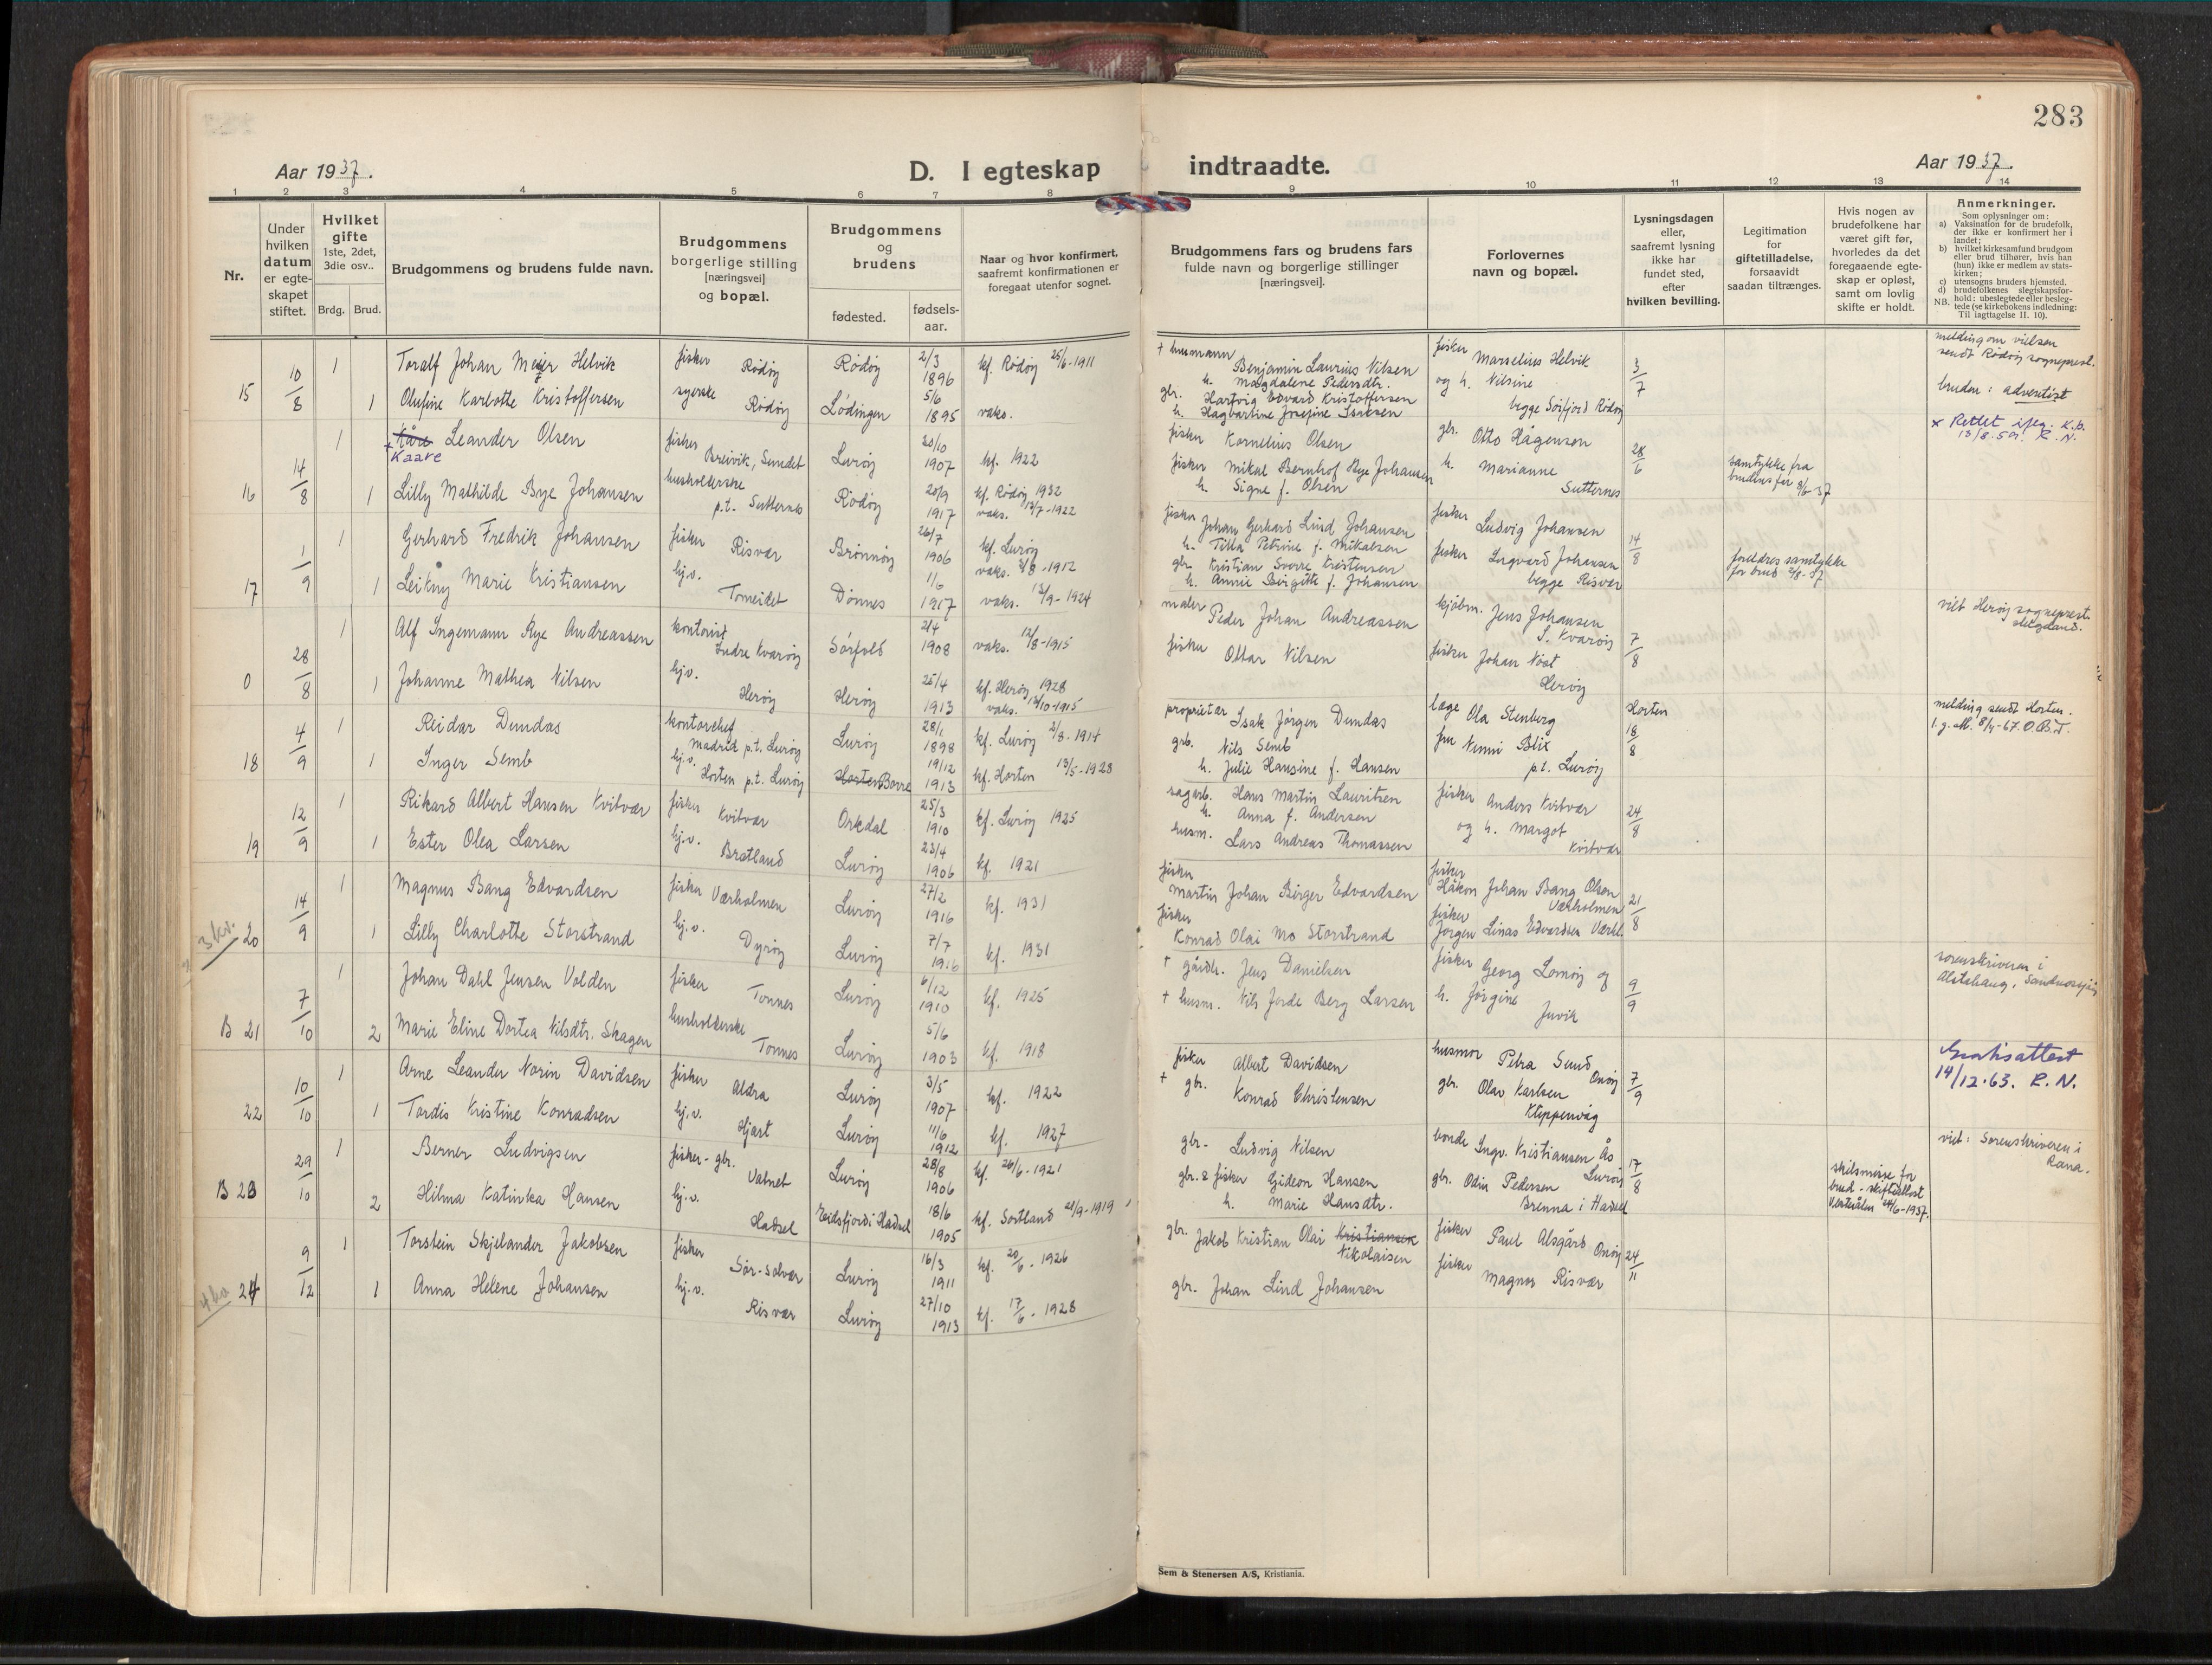 283
Aar 1937.
D. I egteskap indtraadte.
Aar 1937.
1 2 3 4 5 6 7 8 9 10 11 12 13 14
Nr.
Under hvilken datum er egte-skapet stiftet.
Hvilket gifte 1ste, 2det, 3die osv..
Brdg. Brud.
Brudgommens og brudens fulde navn.
Brudgommens borgerlige stilling [næringsvei] og bopæl.
Brudgommens og brudens
fødested. fødsels-aar.
Naar og hvor konfirmert, saafremt konfirmationen er foregaat utenfor sognet.
Brudgommens fars og brudens fars fulde navn og borgerlige stillinger [næringsvei].
Forlovernes navn og bopæl.
Lysningsdagen eller, saafremt lysning ikke har fundet sted, efter hvilken bevilling.
Legitimation for giftetilladelse, forsaavidt saadan tiltrænges.
Hvis nogen av brudefolkene har været gift før, hvorledes da det foregaaende egte-skap er opløst, samt om lovlig skifte er holdt.
Anmerkninger.
Som oplysninger om:
a) Vaksination for de brudefolk, der ikke er konfirmert her i landet;
b) hvilket kirkesamfund brudgom eller brud tilhører, hvis han (hun) ikke er medlem av stats-kirken;
c) utensogns bruders hjemsted.
d) brudefolkenes slegtskapsfor-hold: ubeslegtede eller besleg-tede (se kirkebokens indledning: Til iagttagelse II. 10).
NB.
15 10/8 1 Toralf Johan Meier Helvik fisker Rødøy Rødøy 2/3 1896 kf. Rødøy 25/6-1911
1 Olufine Karlotte Kristoffersen syerske Rødøy Lødingen 5/6 1895 vaks.
+ husmann Benjamin Laurius Nilsen
h. Magdalene Pedersdtr.
gbr. Hartvig Edvard Kristoffersen
h. Hagbartine Josefine Isaksen
fisker Marselius Helvik
og h. Nilsine
begge Sørfjord Rødøy
3/7
melding om vielsen
sendt Rødøy sogneprest.
bruden: adventist
16 14/8 1 Kåre Leander Olsen fisker Breivik, Sundet Lurøy 20/10 1907 kf. 1922
+ Kaare
1 Lilly Mathilde Bye Johansen husholderske p.t. Sutternes Rødøy 20/9 1917 kf. Rødøy 1932
vaks. 13/7-1922
fisker Kornelius Olsen
fisker Mikal Bernhof Bye Johansen
h. Signe f. Olsen
gbr. Otto Hågensen
h. Marianne
Sutternes
28/6
samtykke fra
brudens far 9/6-37
x Rettet iflg. K.b.
13/8.59. R.N.
17 1/9 1 Gerhard Fredrik Johansen fisker Risvær Brønnøy 26/7 1906 kf. Lurøy
vaks. 3/8-1912
1 Leikny Marie Kristiansen hj.v. Tomeidet Dønnes 1/6 1917 vaks. 13/9-1924
fisker Johan Gerhard Lind Johansen
h. Tilla Petrine f. Mikalsen
gbr. Kristian Sverre Kristensen
h. Annie Birgitte f. Johansen
fisker Ludvig Johansen
fisker Ingvard Johansen
begge Risvær
14/8
foreldres samtykke
for brud 2/8-37
0 28/8 1 Alf Ingemann Rye Andreassen kontorist Indre Kvarøy Sørfold 2/4 1908 vaks. 12/8-1915
1 Johanne Mathea Nilsen hj.v. Herøy Herøy 25/4 1913 kf. Herøy 1928
vaks. 13/10-1915
maler Peder Johan Andreassen
fisker Ottar Nilsen
kjøbm. Jens Johansen
I. Kvarøy
fisker Johan Nøst
Herøy
7/8
viet Herøy sogneprest
18 4/9 1 Reidar Dundas kontorchef Madrid p.t. Lurøy Lurøy 28/1 1898 kf. Lurøy 2/8-1914
1 Inger Semb hj.v. Horten p.t. Lurøy Horten Borre 19/12 1913 kf. Horten 13/5-1928
proprietær Isak Jørgen Dundas
Nils Semb
h. Julie Hansine f. Hansen
læge Ola Stenberg
fru Nenni Blix
p.t. Lurøy
Horten
18/8
melding sendt Horten.
l.g.att. 8/4-67. O.B.T.
19 12/9 1 Rikard Albert Hansen Kvitvær fisker Kvitvær Orkdal 25/3 1910 kf. Lurøy 1925
1 Ester Olea Larsen hj.v. Bratland Lurøy 23/4 1906 kf. 1921
sagarb. Hans Martin Lauritsen
h. Anna f. Andersen
husm. Lars Andreas Thomassen
fisker Anders Kvitvær
og h. Margot
Kvitvær
24/8
3 kr. 20 14/9 1 Magnus Bang Edvardsen fisker Værholmen Lurøy 27/2 1916 kf. 1931
1 Lilly Charlotte Storstrand hj.v. Dyrøy Lurøy 7/7 1916 kf. 1931
fisker
Martin Johan Birger Edvardsen
fisker
Konrad Olai Mo Storstrand
fisker
Håkon Johan Bang Olsen
Værholmen
fisker
Jørgen Linas Edvardsen Værhl.
21/8
B 21 7/10 1 Johan Dahl Jensen Valden fisker Tonnes Lurøy 6/12 1910 kf. 1925
2 Marie Eline Dortea Nilsdtr. Skagen husholderske Tonnes Lurøy 5/6 1903 kf. 1918
+ gårdbr. Jens Danielsen
+ husm. Nils Jorde Berg Larsen
fisker Georg Lomøy og
h. Jørgine
Juvik
9/9
sorenskriveren i
Alstahaug, Sandnessjøen
22 10/10 1 Arne Leander Norin Davidsen fisker Aldra Lurøy 3/5 1907 kf. 1922
1 Tordis Kristine Konradsen hj.v. Hjart Lurøy 11/6 1912 kf. 1927
fisker Albert Davidsen
+ gbr. Konrad Christensen
husmor Petra Sund
Onøy
gbr. Olav Karlsen
Kleppenvåg
7/9
Gratisattest
14/12.63. R.N.
B 23 29/10 1 Berner Ludvigsen fisker-gbr. Valnet Lurøy 28/8 1906 kf. 26/6-1921
2 Hilma Katinka Hansen hj.v. Hadsel Eidsfjord i Hadsel 18/6 1905 kf. Sortland 21/9-1919
gbr. Ludvig Nilsen
gbr. & fisker Gideon Hansen
h. Marie Hansdtr.
bonde Ingv. Kristiansen Ås
Lurøy
gbr. Odin Pedersen
Brenna i Hadsel
17/8
skilsmisse for
brud - skifteattest
Vesterålen 24/6-1937.
viet: Sorenskriveren i
Rana.
4 kr. 24 9/12 1 Torstein Skjelander Jakobsen fisker Sør-Solvær Lurøy 16/3 1911 kf. 20/6-1926
1 Anna Helene Johansen hj.v. Risvær Lurøy 27/10 1913 kf. 17/6-1928
gbr. Jakob Kristian Olai Kristiansen
Nikolaisen
gbr. Johan Lind Johansen
fisker Paul Alsgård Onøy
fisker Magnor Risvær
24/11
Sem & Stenersen A/S, Kristiania.